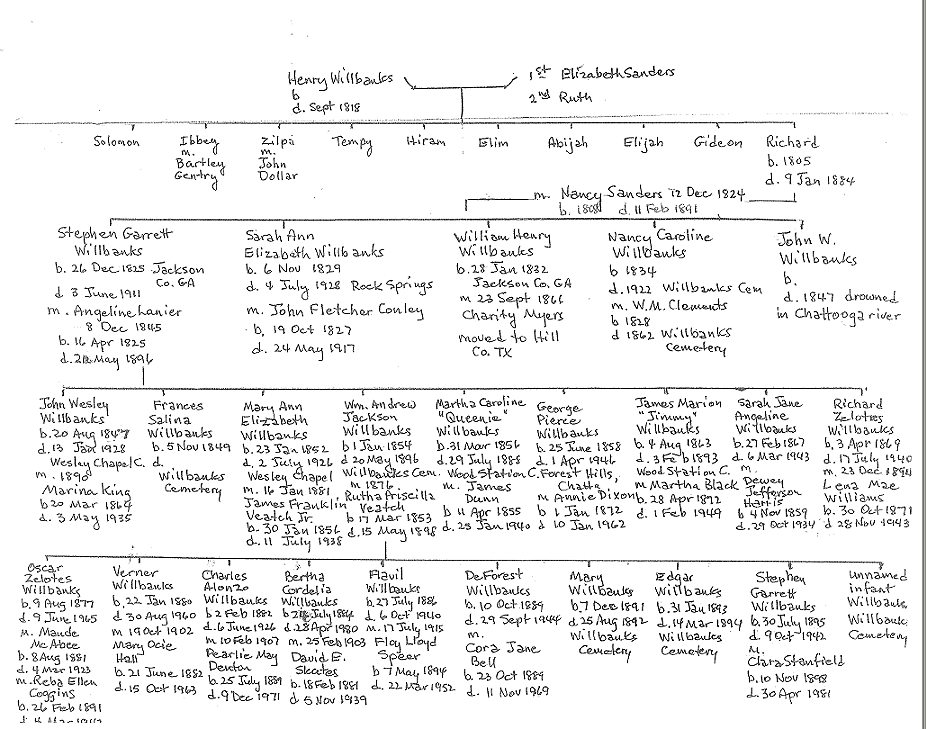 Henry Willbanks
b
d. Sept 1818
1st Elizabeth Sanders
2nd Ruth
Solomon
Ibbey
m.
Bartley
Gentry
Zilpa
m.
John
Dollar
Tempy
Hiram
Elim
Abijah
Elijah
Gideon
Richard
b. 1805
d. 9 Jan 1884
m. Nancy Sanders 12 Dec 1824
b. 1808 d. 11 Feb 1891
Stephen Garrett
Willbanks
b. 26 Dec 1825 Jackson
Co. GA
d 3 June 1911
m. Angeline Lanier
8 Dec 1845
b. 16 Apr 1825
d. May 1896
Sarah Ann
Elizabeth Willbanks
b. 6 Nov 1829
d. 4 July 1928 Rock Springs
m. John Fletcher Conley
b. 19 Oct 1827
d. 24 May 1917
William Henry
Willbanks
b. 28 Jan 1832
Jackson Co. GA
m 23 Sept 1866
Charity Myers
moved to Hill
Co. TX
Nancy Caroline
Willbanks
b 1834
d. 1922 Willbanks Cem
m. W.M. Clements
b 1828
d 1862 Willbanks
Cemetery
John W.
Willbanks
b.
d. 1847 drowned
in Chattooga river
John Wesley
Willbanks
b. 20 Aug 1847
d. 13 Jan 1928
Wesley Chapel C.
m. 1890
Marina King
b 20 Mar 1869
d. 3 May 1935
Frances
Salina
Willbanks
b. 5 Nov 1849
d.
Willbanks
Cemetery
Mary Ann
Elizabeth
Willbanks
b. 23 Jan 1852
d. 2 July 1926
Wesley Chapel
m. 16 Jan 1881
James Franklin
Veatch Jr.
b. 30 Jan 1856
d. 11 July 1938
Wm. Andrew
Jackson
Willbanks
b 1 Jan 1854
d 20 May 1896
Willbanks Cem.
m 1876
Rutha Priscilla
Veatch
b 17 Mar 1853
d. 15 May 1898
Martha Caroline
"Queenie"
Willbanks
b. 31 Mar 1856
d. 29 July 1888
Wood Station C.
m. James
Dunn
b 11 Apr 1855
d. 25 Jan 1940
George
Pierce
Willbanks
b 25 June 1858
d. 1 Apr 1946
Forest Hills,
Chatta.
m Annie Dixon
b 1 Jan 1872
d 10 Jan 1962
James Marion
"Jimmy"
Willbanks
b. 4 Aug 1863
d. 3 Feb 1893
Wood Station C.
m Martha Black
b. 28 Apr 1872
d. 1 Feb 1949
Sarah Jane
Angeline
Willbanks
b. 27 Feb 1867
d. 6 Mar 1943
m.
Dewey
Jefferson
Harris
b 4 Nov 1859
d. 29 Oct 1934
Richard
Zelotes
Willbanks
b. 3 Apr 1869
d. 17 July 1940
m. 23 Dec 1894
Lena Mae
Williams
b. 30 Oct 1871
d 28 Nov 1943
Oscar
Zelotes
Willbanks
b. 9 Aug 1877
d. 9 June 1965
m. Maude
McAbee
b. 8 Aug 1881
d. 4 Mar 1923
m. Reba Ellen
Coggins
b. 26 Feb 1891
Verner
Willbanks
b. 22 Jan 1880
d 30 Aug 1960
m 19 Oct 1902
Mary Ocie
Hall
b. 21 June 1882
d. 15 Oct 1963
Charles
Alonzo
Willbanks
b 2 Feb 1882
d. 6 June 1926
m 10 Feb 1907
Pearlie May
Denton
b. 25 July 1889
d. 9 Dec 1971
Bertha
Cordelia
Willbanks
b. July 1884
d. 28 Apr 1980
m. 25 Feb 1903
David E.
Skeates
b. 18 Feb 1881
d 5 Nov 1939
Flavil
Willbanks
b. 27 July 1886
d. 6 Oct 1940
m. 17 July 1915
Floy Lloyd
Speer
b 7 May 1894
d. 22 Mar 1952
DeForest
Willbanks
b. 10 Oct 1889
d. 29 Sept 1944
m.
Cora Jane
Bell
b. 23 Oct 1889
d. 11 Nov 1969
Mary
Willbanks
b. 7 Dec 1891
d. 25 Aug 1892
Willbanks
Cemetery
Edgar
Willbanks
b. 31 Jan 1893
d. 14 Mar 1894
Willbanks
Cemetery
Stephen
Garrett
Willbanks
b. 30 July 1895
d. 9 Oct 1942
m.
Clara Stanfield
b. 10 Nov 1898
d. 30 Apr 1981
Unnamed
infant
Willbanks
Willbanks
Cemetery